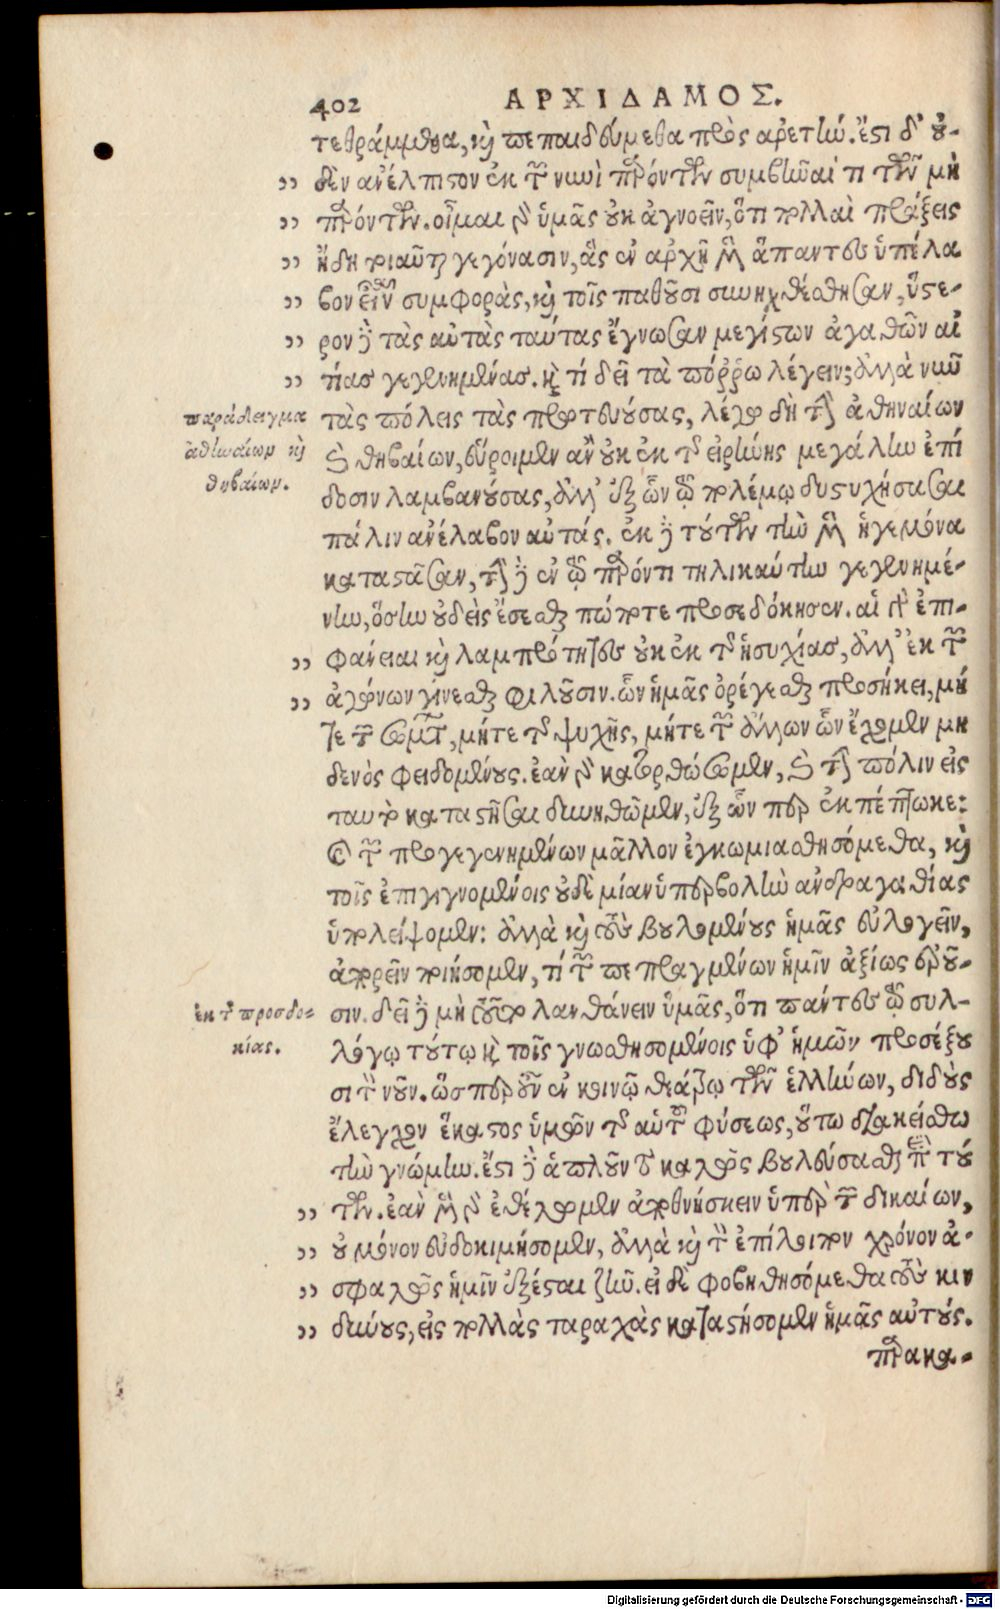 402 ΑΡΧΙΔΑΜΟΣ.
τεθράμμεθα, καὶ πεπαιδεύμεθα πρὸς ἀρετὴν. ἔστι δ' οὐ-
δὲν ἀνέλπιστον ἐκ τῶν νυνὶ παρόντων συμβῆναί τι τῶν μὴ
παρόντων. οἶμαι δ' ὑμᾶς οὐκ ἀγνοεῖν, ὅτι πολλαὶ πράξεις
ἤδη τοιαῦται γεγόνασιν, ἃς ἐν ἀρχῇ μὲν ἅπαντες ὑπέλα
βον εἶναι συμφορὰς, καὶ τοῖς παθοῦσι συνηχθέσθησαν, ὕστε-
ρον δὲ τὰς αὐτὰς ταύτας ἔγνωσαν μεγίστων ἀγαθῶν αἰ
τίας γεγενημένας. καὶ τί δεῖ τὰ πόῤῥω λέγειν; ἀλλὰ νῦν
παράδειγμα
ἀθηναίων καὶ
θηβαίων.
τὰς πόλεις τὰς πρωτευούσας, λέγω δὴ τὴν ἀθηναίων
καὶ θηβαίων, εὕροιμεν ἂν οὐκ ἐκ τῆς εἰρήνης μεγάλην ἐπί
δοσιν λαμβανούσας, ἀλλ' ἐξ ὧν ἐν τῷ πολέμῳ δυστυχήσασαι
πάλιν ἀνέλαβον αὐτάς. ἐκ δὲ τούτων τὴν μὲν ἡγεμόνα
καταστᾶσαν, τὴν δὲ ἐν τῷ παρόντι τηλικαύτην γεγενημέ-
νην, ὅσην οὐδεὶς ἔσεσθαι πώποτε προσεδόκησεν. αἱ γὰρ ἐπι-
φάνειαι καὶ λαμπρότητες οὐκ ἐκ τῆς ἡσυχίας, ἀλλ' ἐκ τῶν
ἀγώνων γίνεσθαι φιλοῦσιν. ὧν ἡμᾶς ὀρέγεσθαι προσήκει, μή
τε τῶν σωμάτων, μήτε τῆς ψυχῆς, μήτε τῶν ἄλλων ὧν ἔχομεν μη
δενὸς φειδομένους. ἐὰν γὰρ κατορθώσωμεν, καὶ τὴν πόλιν εἰς
ταυτὸ καταστῆσαι δυνηθῶμεν, ἐξ ὧν περ ἐκπέπτωκε:
καὶ τῶν προγεγενημένων μᾶλλον ἐγκωμιασθησόμεθα, καὶ
τοῖς ἐπιγιγνομένοις οὐδὲ μίαν ὑπερβολὴν ἀνδραγαθίας
ὑπολείψομεν: ἀλλὰ καὶ τοὺς βουλομένους ἡμᾶς εὐλογεῖν,
ἀπορεῖν ποιήσομεν, τί τῶν πεπραγμένων ἡμῖν ἀξίως ἐροῦ-
ἐκ τῆς προσδο-
κίας.
σιν. δεῖ δὲ μὴ τοῦτο λανθάνειν ὑμᾶς, ὅτι πάντες τῷ συλ-
λόγῳ τούτῳ καὶ τοῖς γνωσθησομένοις ὑφ' ἡμῶν προσέξου
σι τὸν νοῦν. ὥσπερ οὖν ἐν κοινῷ θεάτρῳ τῶν ἑλλήνων, διδοὺς
ἔλεγχον ἕκαστος ὑμῶν τῆς αὑτοῦ φύσεως, οὕτω διακείσθω
τὴν γνώμην. ἔστι δὲ ἁπλοῦν τὸ καλῶς βουλεύσασθαι περὶ τού
των. ἐὰν μὲν γὰρ ἐθέλωμεν ἀποθνήσκειν ὑπὲρ τῶν δικαίων,
οὐ μόνον εὐδοκιμήσομεν, ἀλλὰ καὶ τὸν ἐπίλοιπον χρόνον ἀ-
σφαλῶς ἡμῖν ἐξέσται ζῆν. εἰ δὲ φοβηθησόμεθα τοὺς κιν
δύνους, εἰς πολλὰς ταραχὰς καταστήσομεν ἡμᾶς αὐτούς.
παρακα-
Digitalisierung gefördert durch die Deutsche Forschungsgemeinschaft - DFG